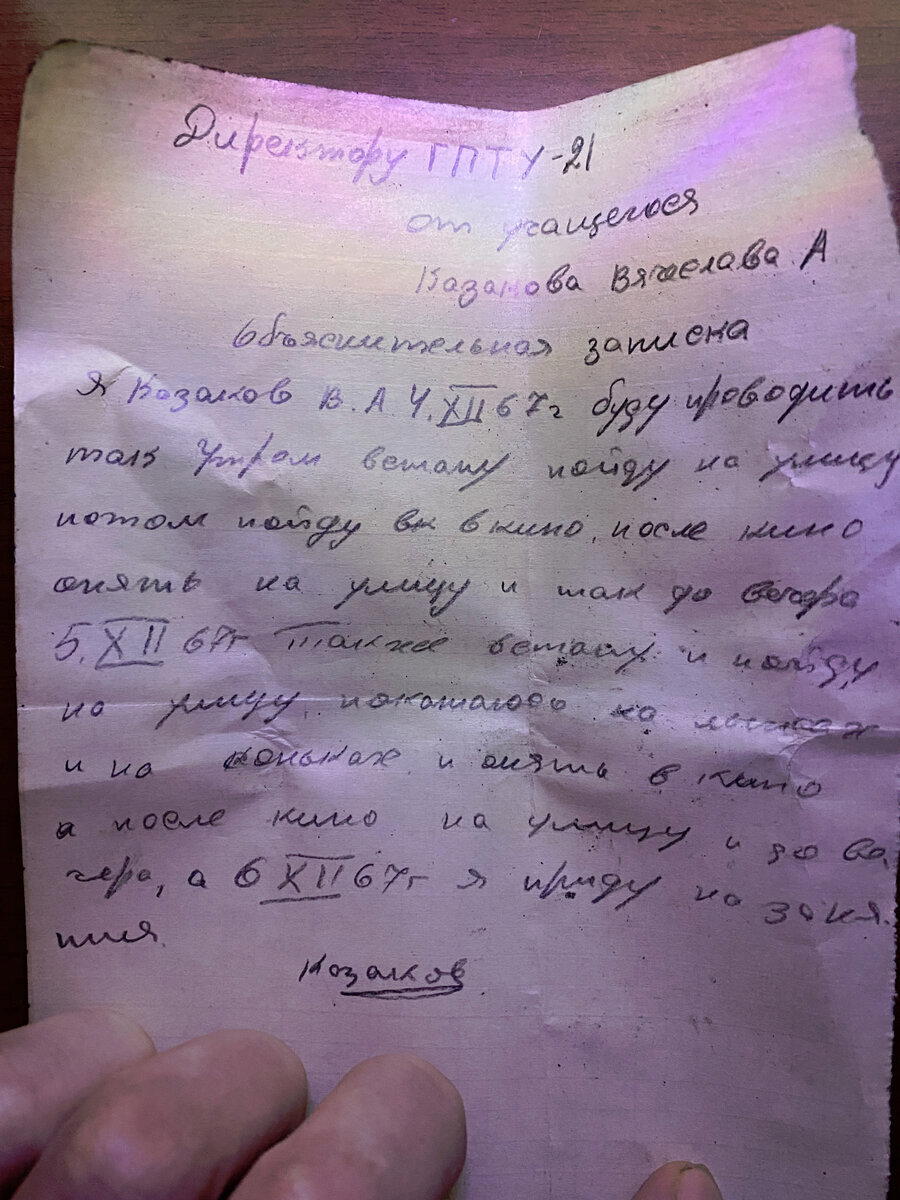 Директору ГПТУ-21
от учащегося
Казакова Вячеслава А
Объяснительная записка
Я Казаков В.А. 4.XII 67г буду проводить
так Утром встану пойду на улицу
потом пойду вк в кино, после кино
опять на улицу и так до вечера
5.XII 67г также встану и пойду
на улицу, покатаюсь на лыжах
и на коньках и опять в кино
а после кино на улицу и до ве,
чера, а 6 XII 67г я приду на заня.
тия.
Казаков